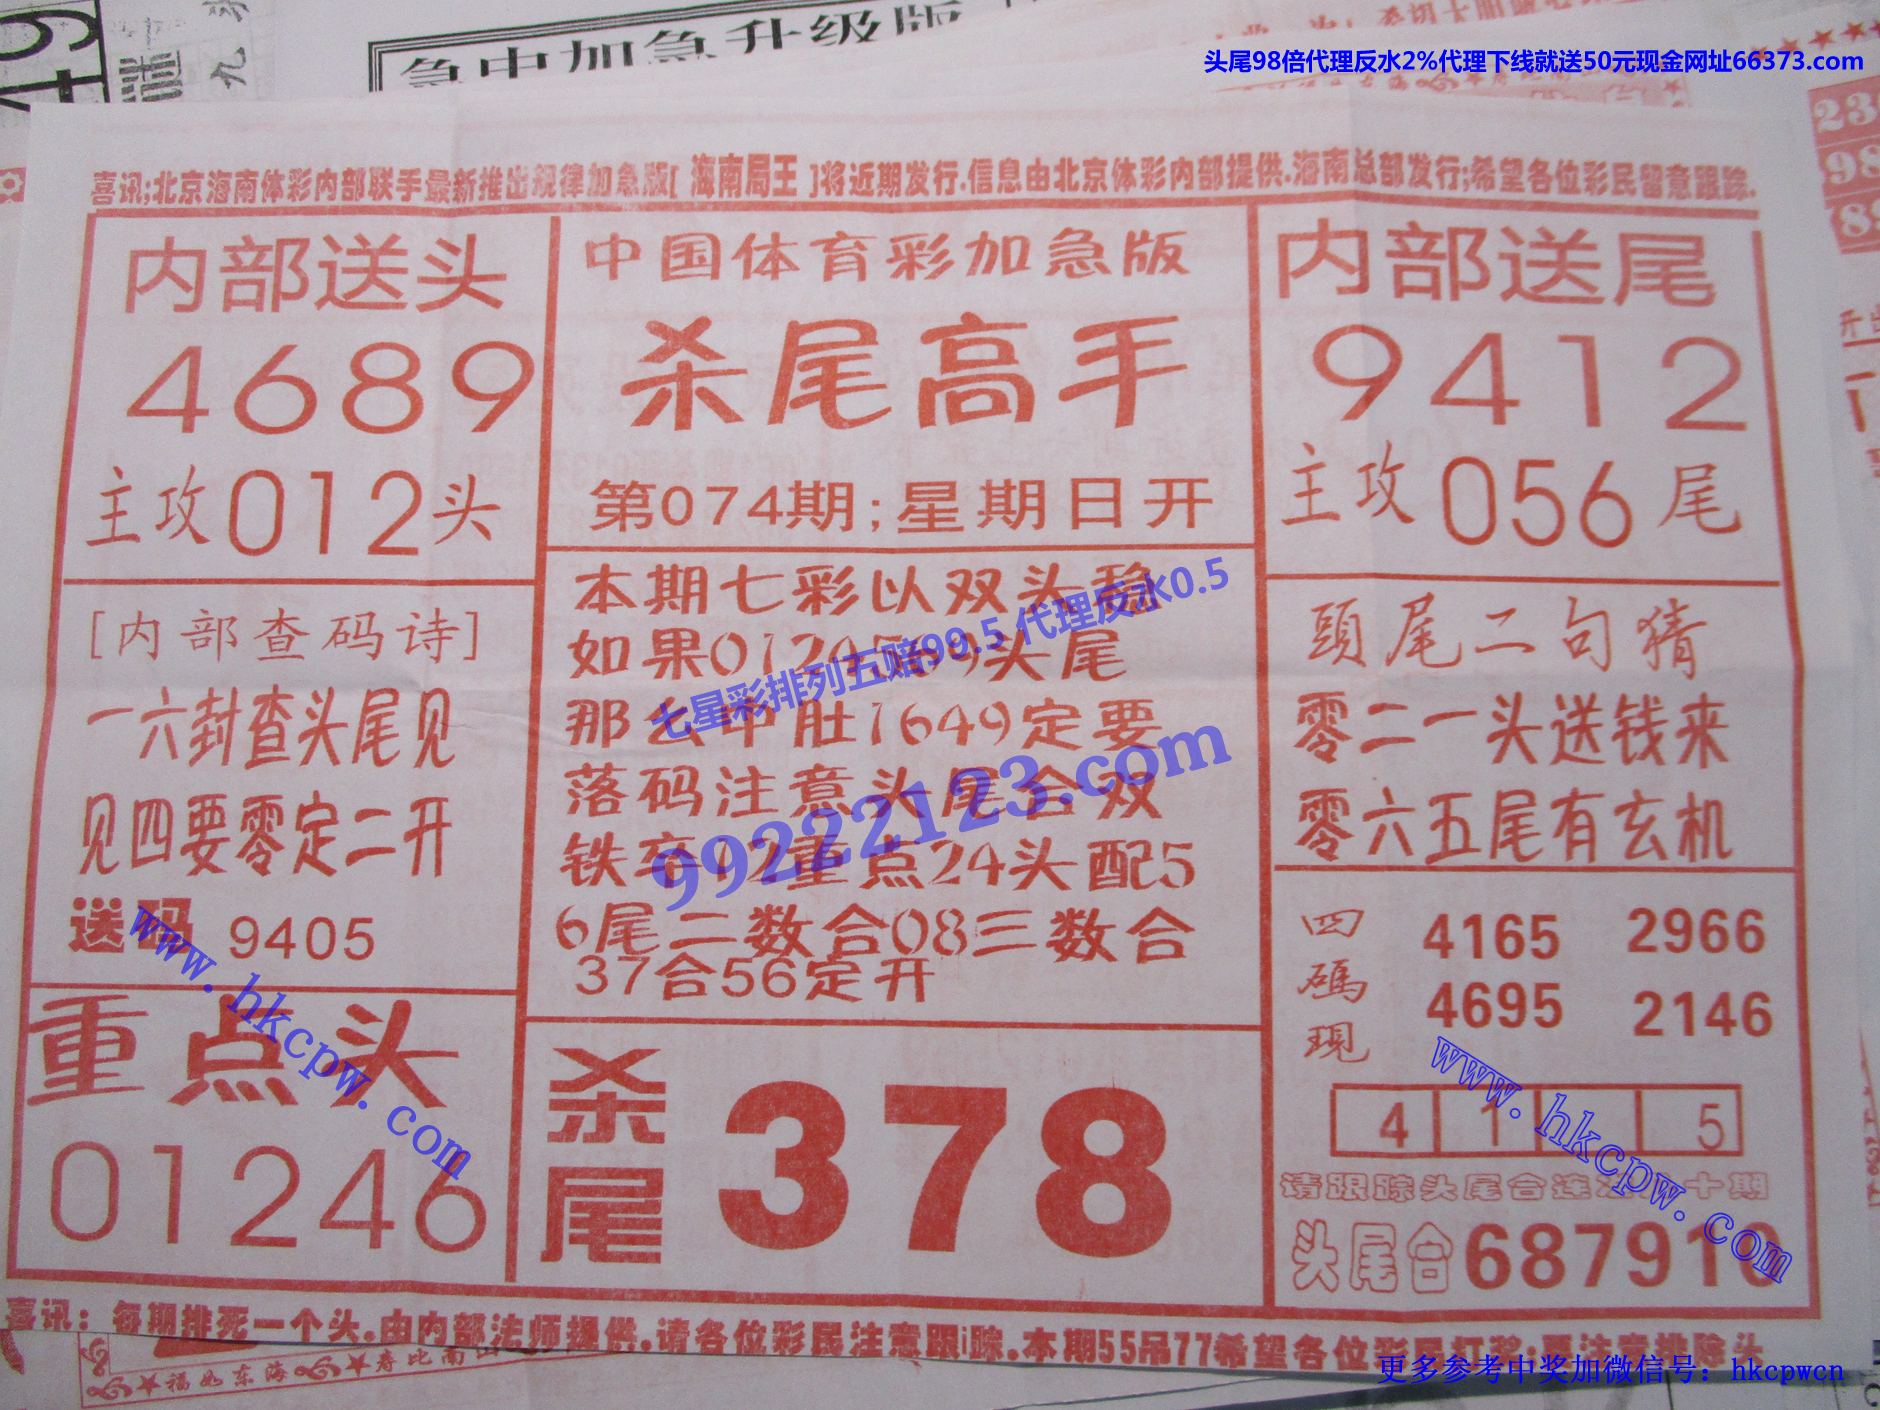 急中加急升级版
头尾98倍代理反水2%代理下线就送50元现金网址66373.com
喜讯;北京海南体彩内部联手最新推出规律加急版[ 海南局王 ]将近期发行.信息由北京体彩内部提供.海南总部发行;希望各位彩民留意跟踪.
内部送头
4689
主攻012头
中国体育彩加急版
杀尾高手
第074期;星期日开
内部送尾
9412
主攻056尾
[内部查码诗]
一六封查头尾见
见四要零定二开
送码 9405
本期七彩以双头稳
如果012 头尾
那么中肚1649定要
落码注意头尾合双
铁卒12重点24头配5
6尾二数合08三数合
37合56定开
七星彩排列五赔99.5 代理反水0.5
99222123.com
頭尾二句猜
零二一头送钱来
零六五尾有玄机
四碼現
4165 2966
4695 2146
4 1 5
请跟踪头尾合连 十期
头尾合687910
重点头
01246
杀尾
378
www.hkcpw.com
www.hkcpw.com
喜讯：每期排死一个头.由内部法师提供.请各位彩民注意跟踪.本期55吊77希望各位彩民打奖;要注意排除头
福如东海 寿比南山
更多参考中奖加微信号：hkcpwcn